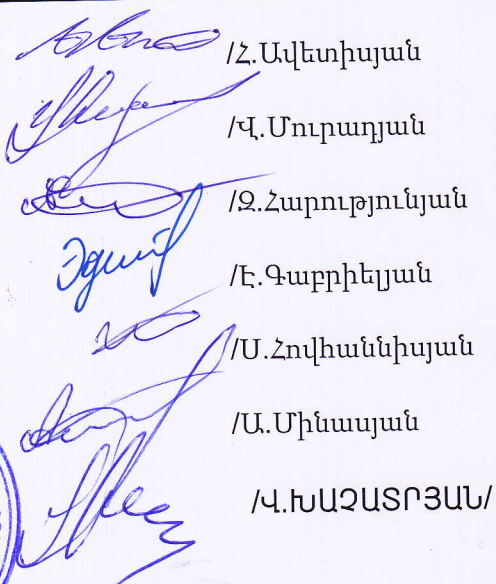 /Հ.Ավետիսյան
/Վ.Մուրադյան
/Զ.Հարությունյան
/Է.Գաբրիելյան
/Ս.Հովհաննիսյան
/Ա.Մինասյան
/Վ.ԽԱՉԱՏՐՅԱՆ/